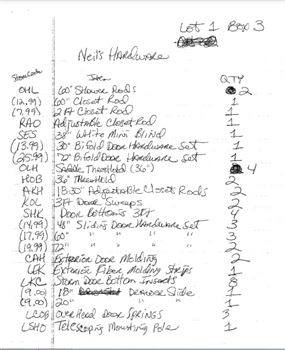 Lot 1 Box 3
Neil's Hardware
Store Code Item QTY
OHL 60" Shower Rods 2
(12.99) 60" Closet Rod 1
(7.99) 2 Ft Closet Rod 1
RAO Adjustable Closet Rod 1
SES 38" White Mini Blind 1
(13.99) 30" Bifold Door Hardware Set 1
(25.99) 72" Bifold Door Hardware Set 1
OLH Saddle Threshold (36") 4
POB 36" Threshold 2
AKH 18-30" Adjustable Closet Rods 2
KOL 3Ft Door Sweeps 2
SHK Door Bottoms 3Ft 4
(14.99) 48" Sliding Door Hardware Set 3
(17.99) 60" " " " " 3
(19.99) 72" " " " " 2
CAH Exterior Door Molding 2
LEK Exterior Fiber Molding Strips 1
LKC Storm Door Bottom Inserts 8
(9.00) 18" Drawer Slide 1
(9.00) 20" " " 1
LCOB Over Head Door Springs 3
LSHO Telescoping Mounting Pole 1